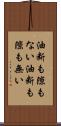 油断も隙も
ない油断も
隙も無い